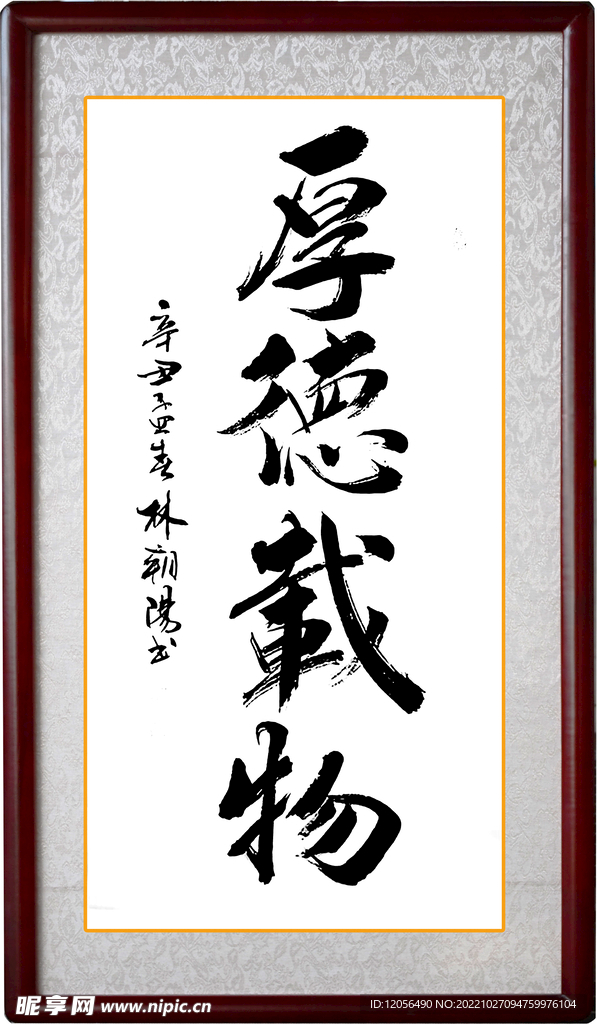 厚德載物
辛丑孟春林朝陽书
昵享网 www.nipic.cn
ID:12056490 NO:20221027094759976104